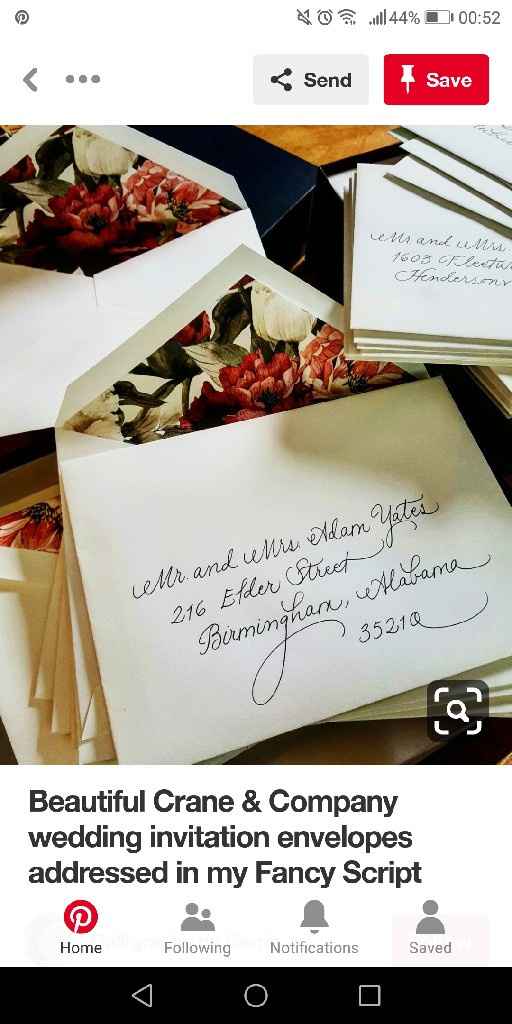 44% 00:52
Send
Save
Mr and Mrs
1603 Fleetw
Hendersonv
Mr. and Mrs. Adam Yates
216 Elder Street
Birmingham, Alabama
35210
Beautiful Crane & Company
wedding invitation envelopes
addressed in my Fancy Script
Home
Following
Notifications
Saved